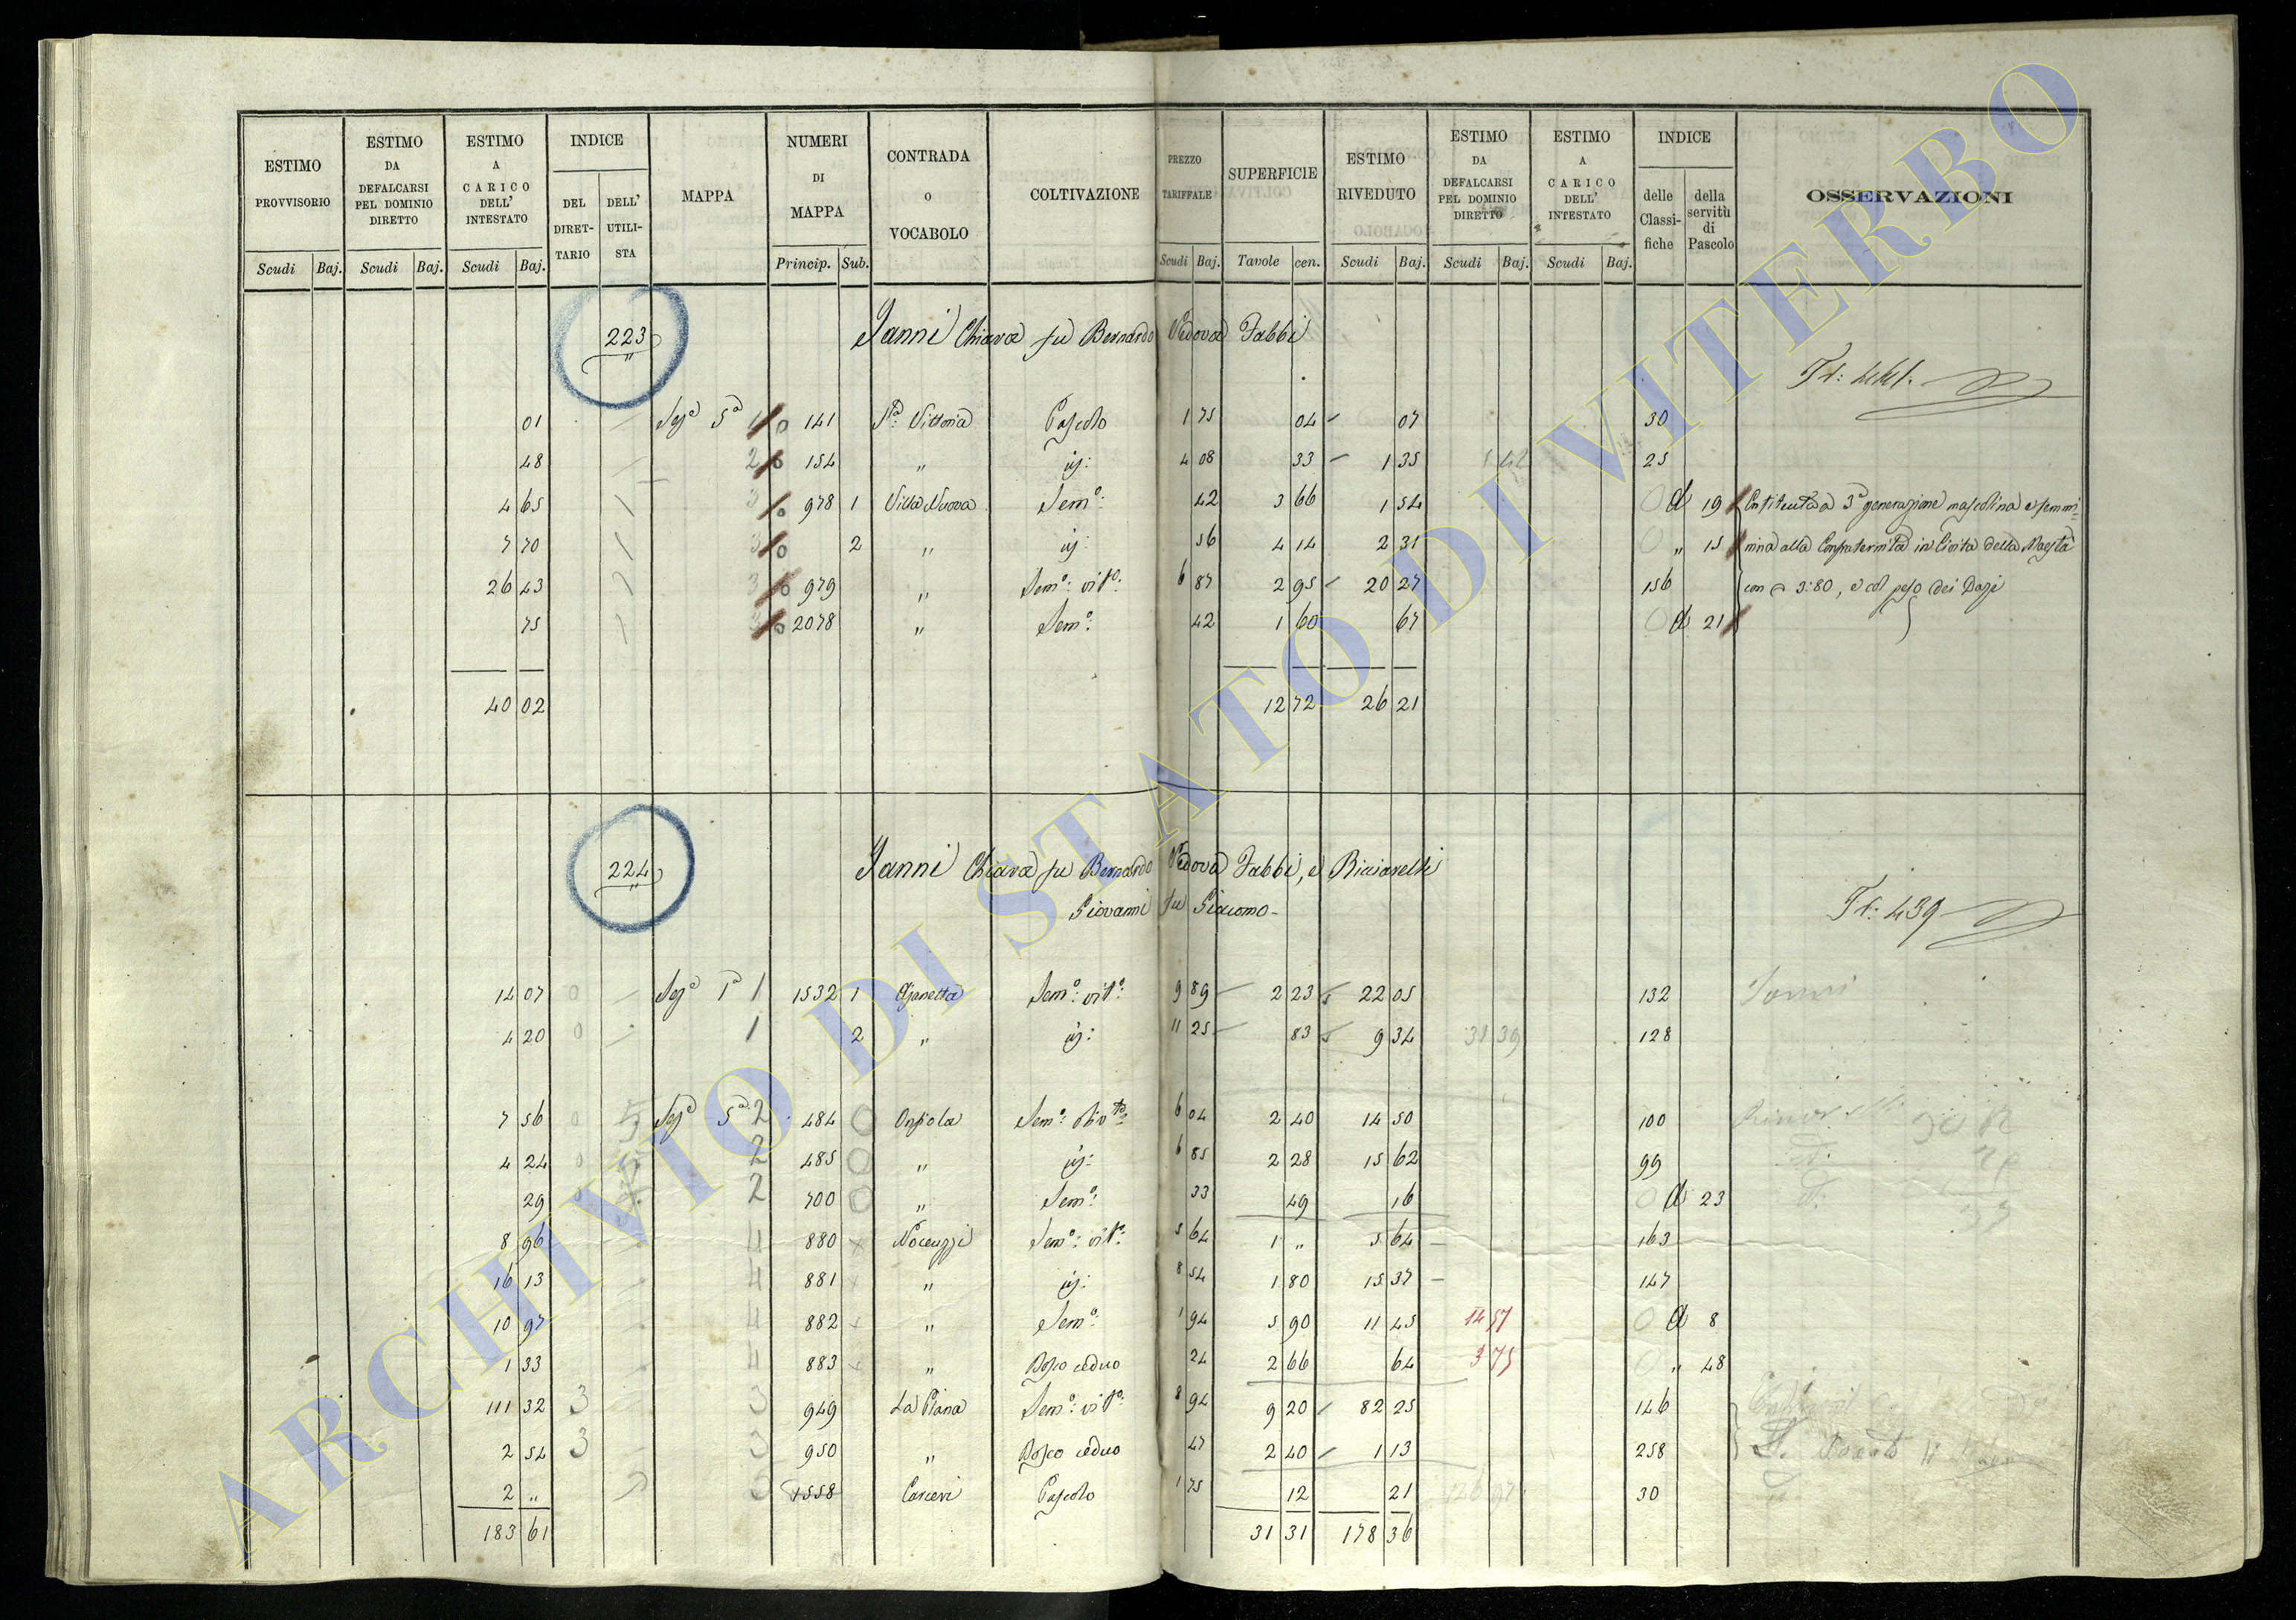 ESTIMO PROVVISORIO | ESTIMO DA DEFALCARSI PEL DOMINIO DIRETTO | ESTIMO A CARICO DELL' INTESTATO | INDICE DEL DIRET-TARIO | DELL' UTILI-STA | MAPPA | NUMERI DI MAPPA | CONTRADA o VOCABOLO | COLTIVAZIONE | PREZZO TARIFFALE | SUPERFICIE | ESTIMO RIVEDUTO | ESTIMO DA DEFALCARSI PEL DOMINIO DIRETTO | ESTIMO A CARICO DELL' INTESTATO | INDICE delle Classi-fiche | della servitù di Pascolo | OSSERVAZIONI
Scudi Baj. | Scudi Baj. | Scudi Baj. | Princip. Sub. | Scudi Baj. | Tavole cen. | Scudi Baj. | Scudi Baj. | Scudi Baj.
223 Janni Chiara fu Bernardo Vedova Fabbi
01 Seze 5a 1 141 Sa: Vittoria Pascolo 1 75 04 07 30
48 2 154 " id: 4 08 33 1 35 5 42 25
4 65 3 978 1 Villa Nuova Sem°: 42 3 66 1 54 a 19 Enfiteutica a 3a generazione mascolina e femmi=
7 70 3 2 " id: 56 4 14 2 31 " 15 nina alla Confraternita in Civita della Maestà
26 43 3 979 " Sem°: vit°: 6 87 2 95 20 27 156 con 3:80, e col peso dei Dazi
75 3 2078 " Sem°: 42 1 60 67 a 21
40 02 12 72 26 21
224 Janni Chiara fu Bernardo Vedova Fabbi, e Ricciarelli
Giovanni fu Giacomo
439
14 07 0 Seze 1a 1 1532 1 Ajanetta Sem°: vit°: 9 89 2 23 22 05 132 Janni
4 20 0 1 2 " id: 11 25 83 9 34 31 39 128
7 56 0 Seze 5a 2 484 Onfiola Sem°: Oliv to: 6 04 2 40 14 50 100
4 24 0 2 485 " id: 6 85 2 28 15 62 99
29 0 2 700 " Sem°: 33 49 16 a 23
8 96 4 880 Nocenzzi Sem°: vit°: 5 64 1 " 5 64 163
16 13 4 881 " id: 8 54 1 80 15 37 147
10 97 4 882 " Sem°: 1 94 5 90 11 45 14 57 a 8
1 33 4 883 " Bosco ceduo 24 2 66 64 3 75 " 48
111 32 3 3 949 La Piana Sem°: vit°: 8 94 9 20 82 25 146
2 54 3 3 950 " Bosco ceduo 47 2 40 1 13 258
2 " 1558 Carceri Pascolo 1 75 12 21 126 97 30
183 61 31 31 178 36
ARCHIVIO DI STATO DI VITERBO